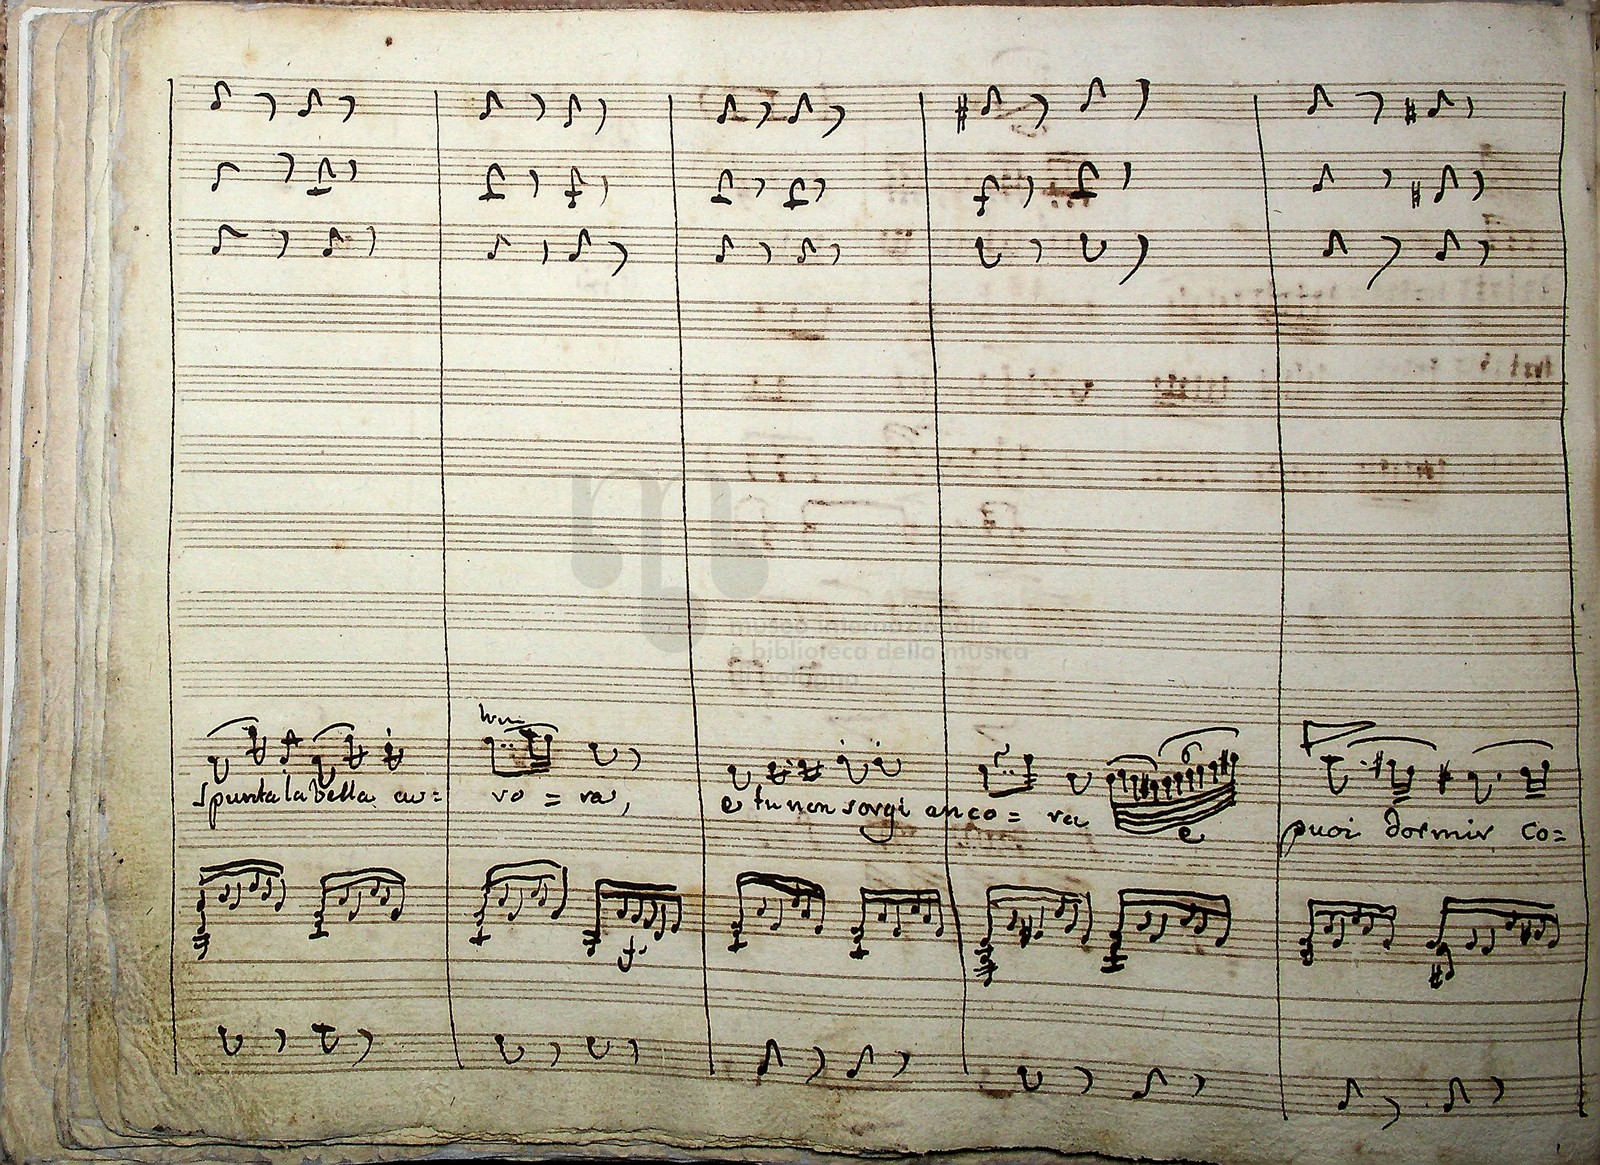 museo internazionale
e biblioteca della musica
di bologna
Spunta la bella au= ro = ra, e tu non sorgi anco = ra e puoi dormir co=